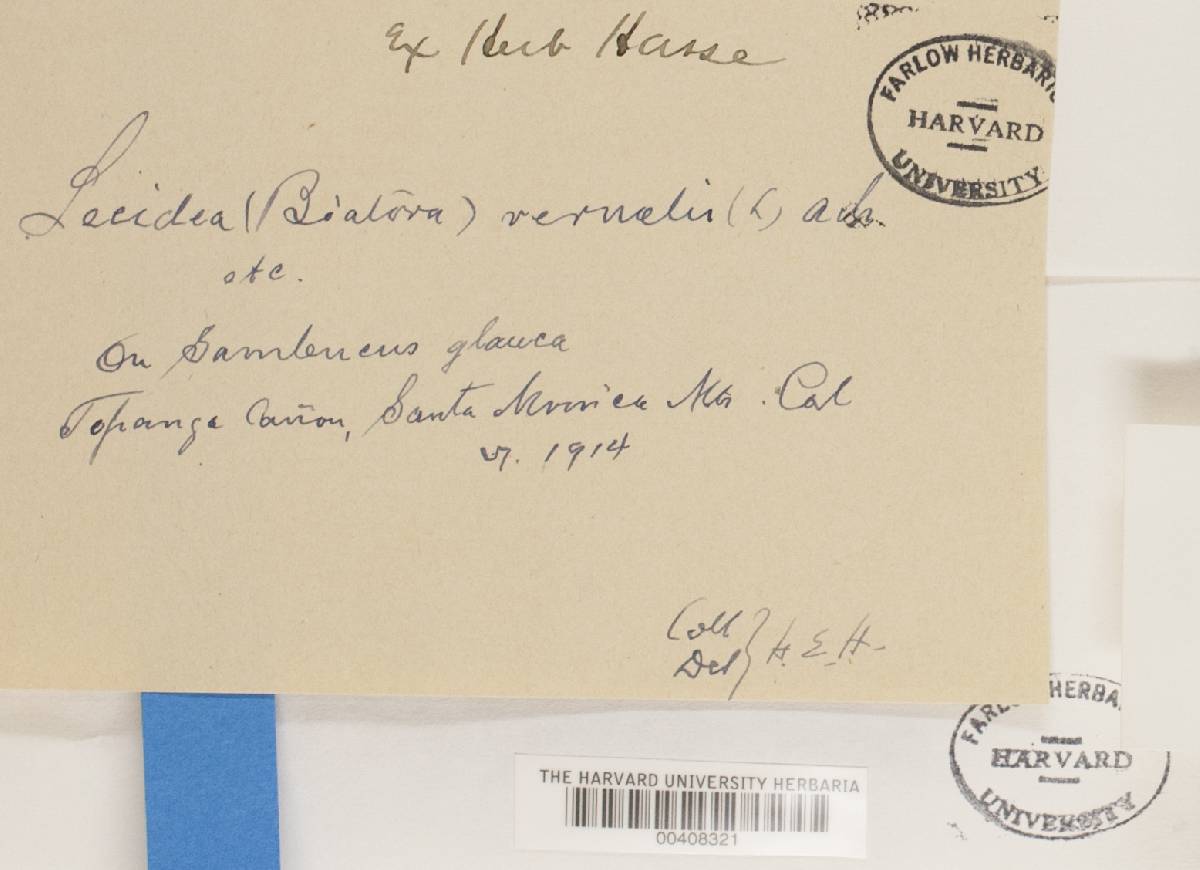 Ex Herb Hasse
FARLOW HERBARIU
HARVARD
UNIVERSITY
Lecidea (Biatora) vernalis (L) Ach.
etc.
On Sambucus glauca
Topanga Cañon, Santa Monica Mts. Cal
1914
Coll
Det } H. E. H.
FARL HERBA
HARVARD
UNIVERSITY
THE HARVARD UNIVERSITY HERBARIA
00408321